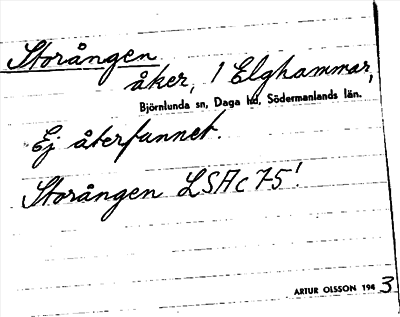 Storången
åker, 1 Elghammar,
Björnlunda sn, Daga hd, Södermanlands län.
Ej återfunnet.
Storången LSA c 75!
ARTUR OLSSON 1943